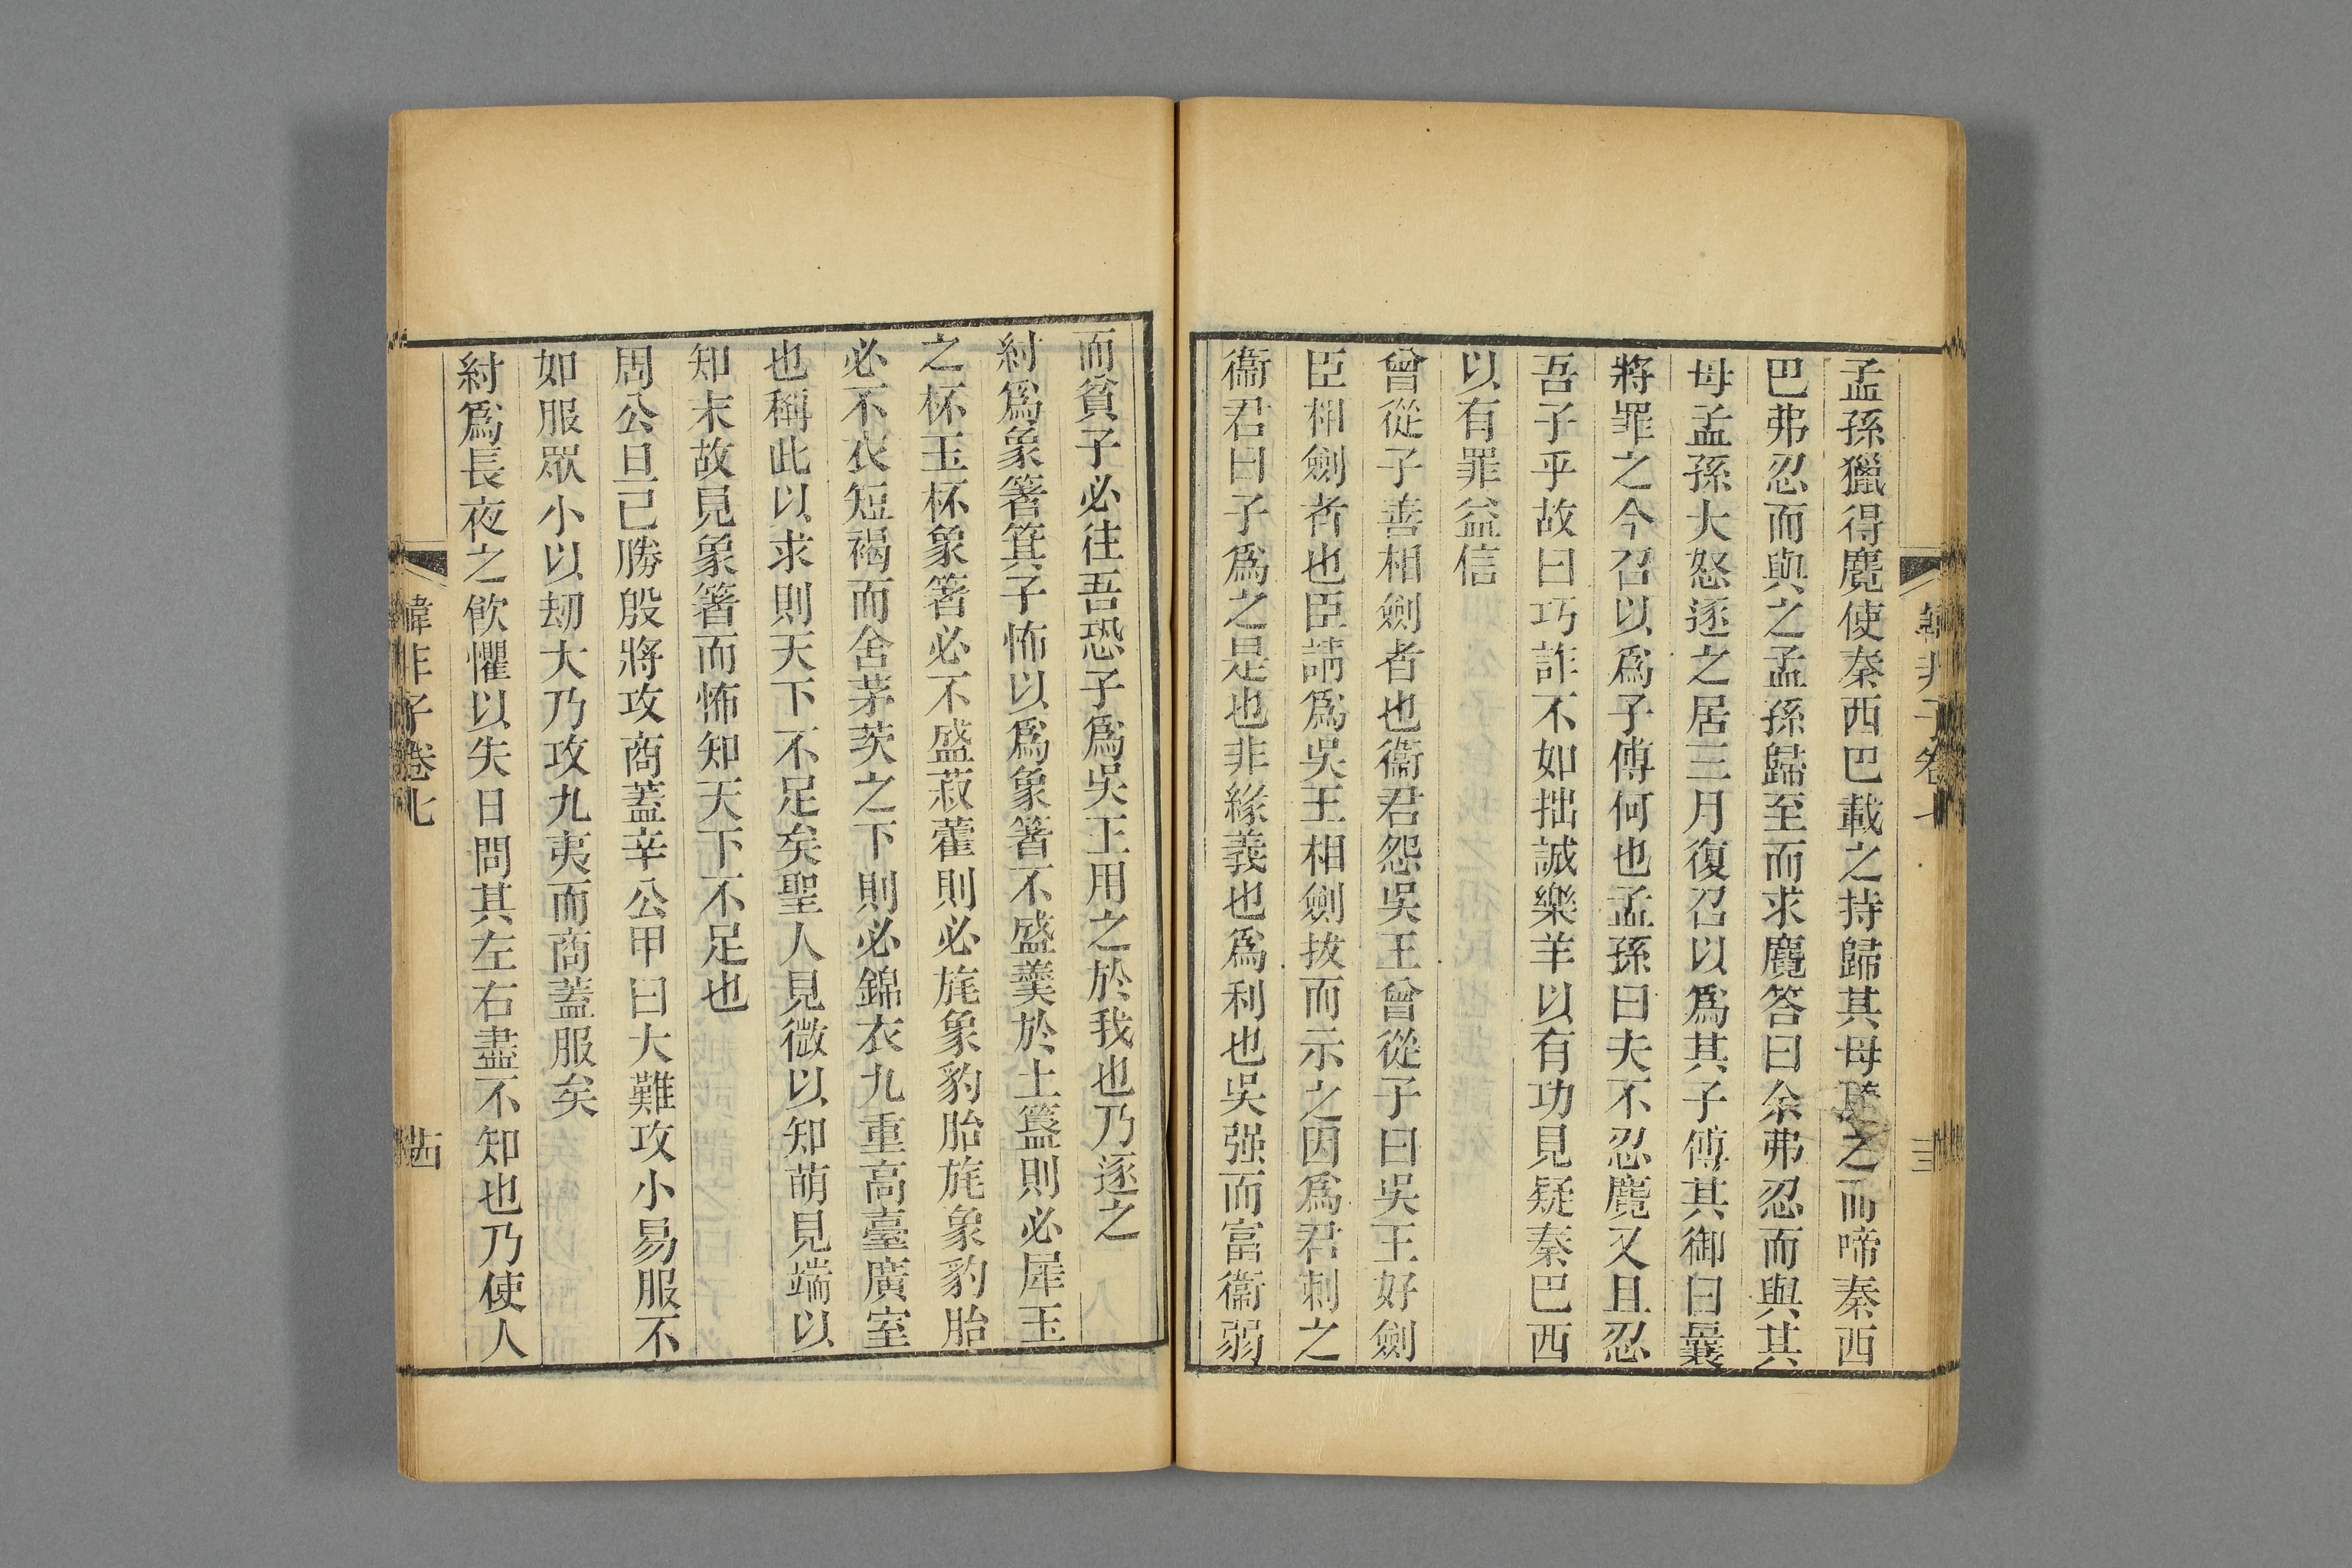 孟孫獵得麑使秦西巴載之持歸其母隨之而啼秦西
巴弗忍而與之孟孫歸至而求麑答曰余弗忍而與其
母孟孫大怒逐之居三月復召以爲其子傅其御曰曩
將罪之今召以爲子傅何也孟孫曰夫不忍麑又且忍
吾子乎故曰巧詐不如拙誠樂羊以有功見疑秦巴西
以有罪益信
曾從子善相劍者也衞君怨吳王曾從子曰吳王好劍
臣相劍者也臣請爲吳王相劍拔而示之因爲君刺之
衞君曰子爲之是也非緣義也爲利也吳强而富衞弱
而貧子必往吾恐子爲吳王用之於我也乃逐之
紂爲象箸箕子怖以爲象箸不盛羹於土簋則必犀玉
之杯玉杯象箸必不盛菽藿則必旄象豹胎旄象豹胎
必不衣短褐而舍茅茨之下則必錦衣九重高臺廣室
也稱此以求則天下不足矣聖人見微以知萌見端以
知末故見象箸而怖知天下不足也
周公旦已勝殷將攻商蓋辛公甲曰大難攻小易服不
如服眾小以劫大乃攻九夷而商蓋服矣
紂爲長夜之飮懼以失日問其左右盡不知也乃使人
韓非子卷七